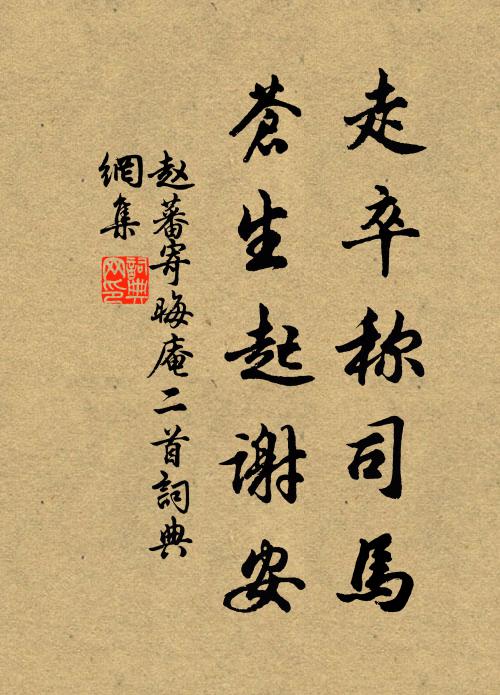 走卒称司馬
蒼生起謝安
赵蕃寄晦庵二首詞典
網集
詞典
网印